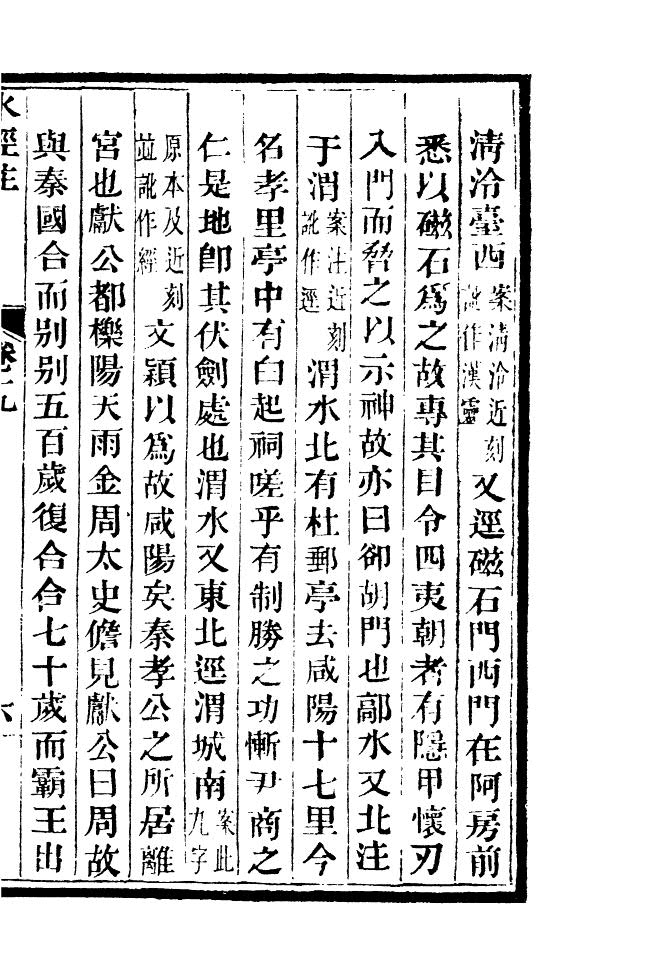 清泠臺西案清泠近刻訛作漢靈又逕磁石門西門在阿房前
悉以磁石爲之故專其目令四夷朝者有隱甲懷刃
入門而脅之以示神故亦曰卻胡門也鄗水又北注
于渭案注近刻訛作逕渭水北有杜郵亭去咸陽十七里今
名孝里亭中有白起祠嗟乎有制勝之功慚尹商之
仁是地卽其伏劍處也渭水又東北逕渭城南案此九字
原本及近刻並訛作經文穎以爲故咸陽矣秦孝公之所居離
宮也獻公都櫟陽天雨金周太史儋見獻公曰周故
與秦國合而别别五百歲復合合七十歲而霸王出
水經注 卷十九 六